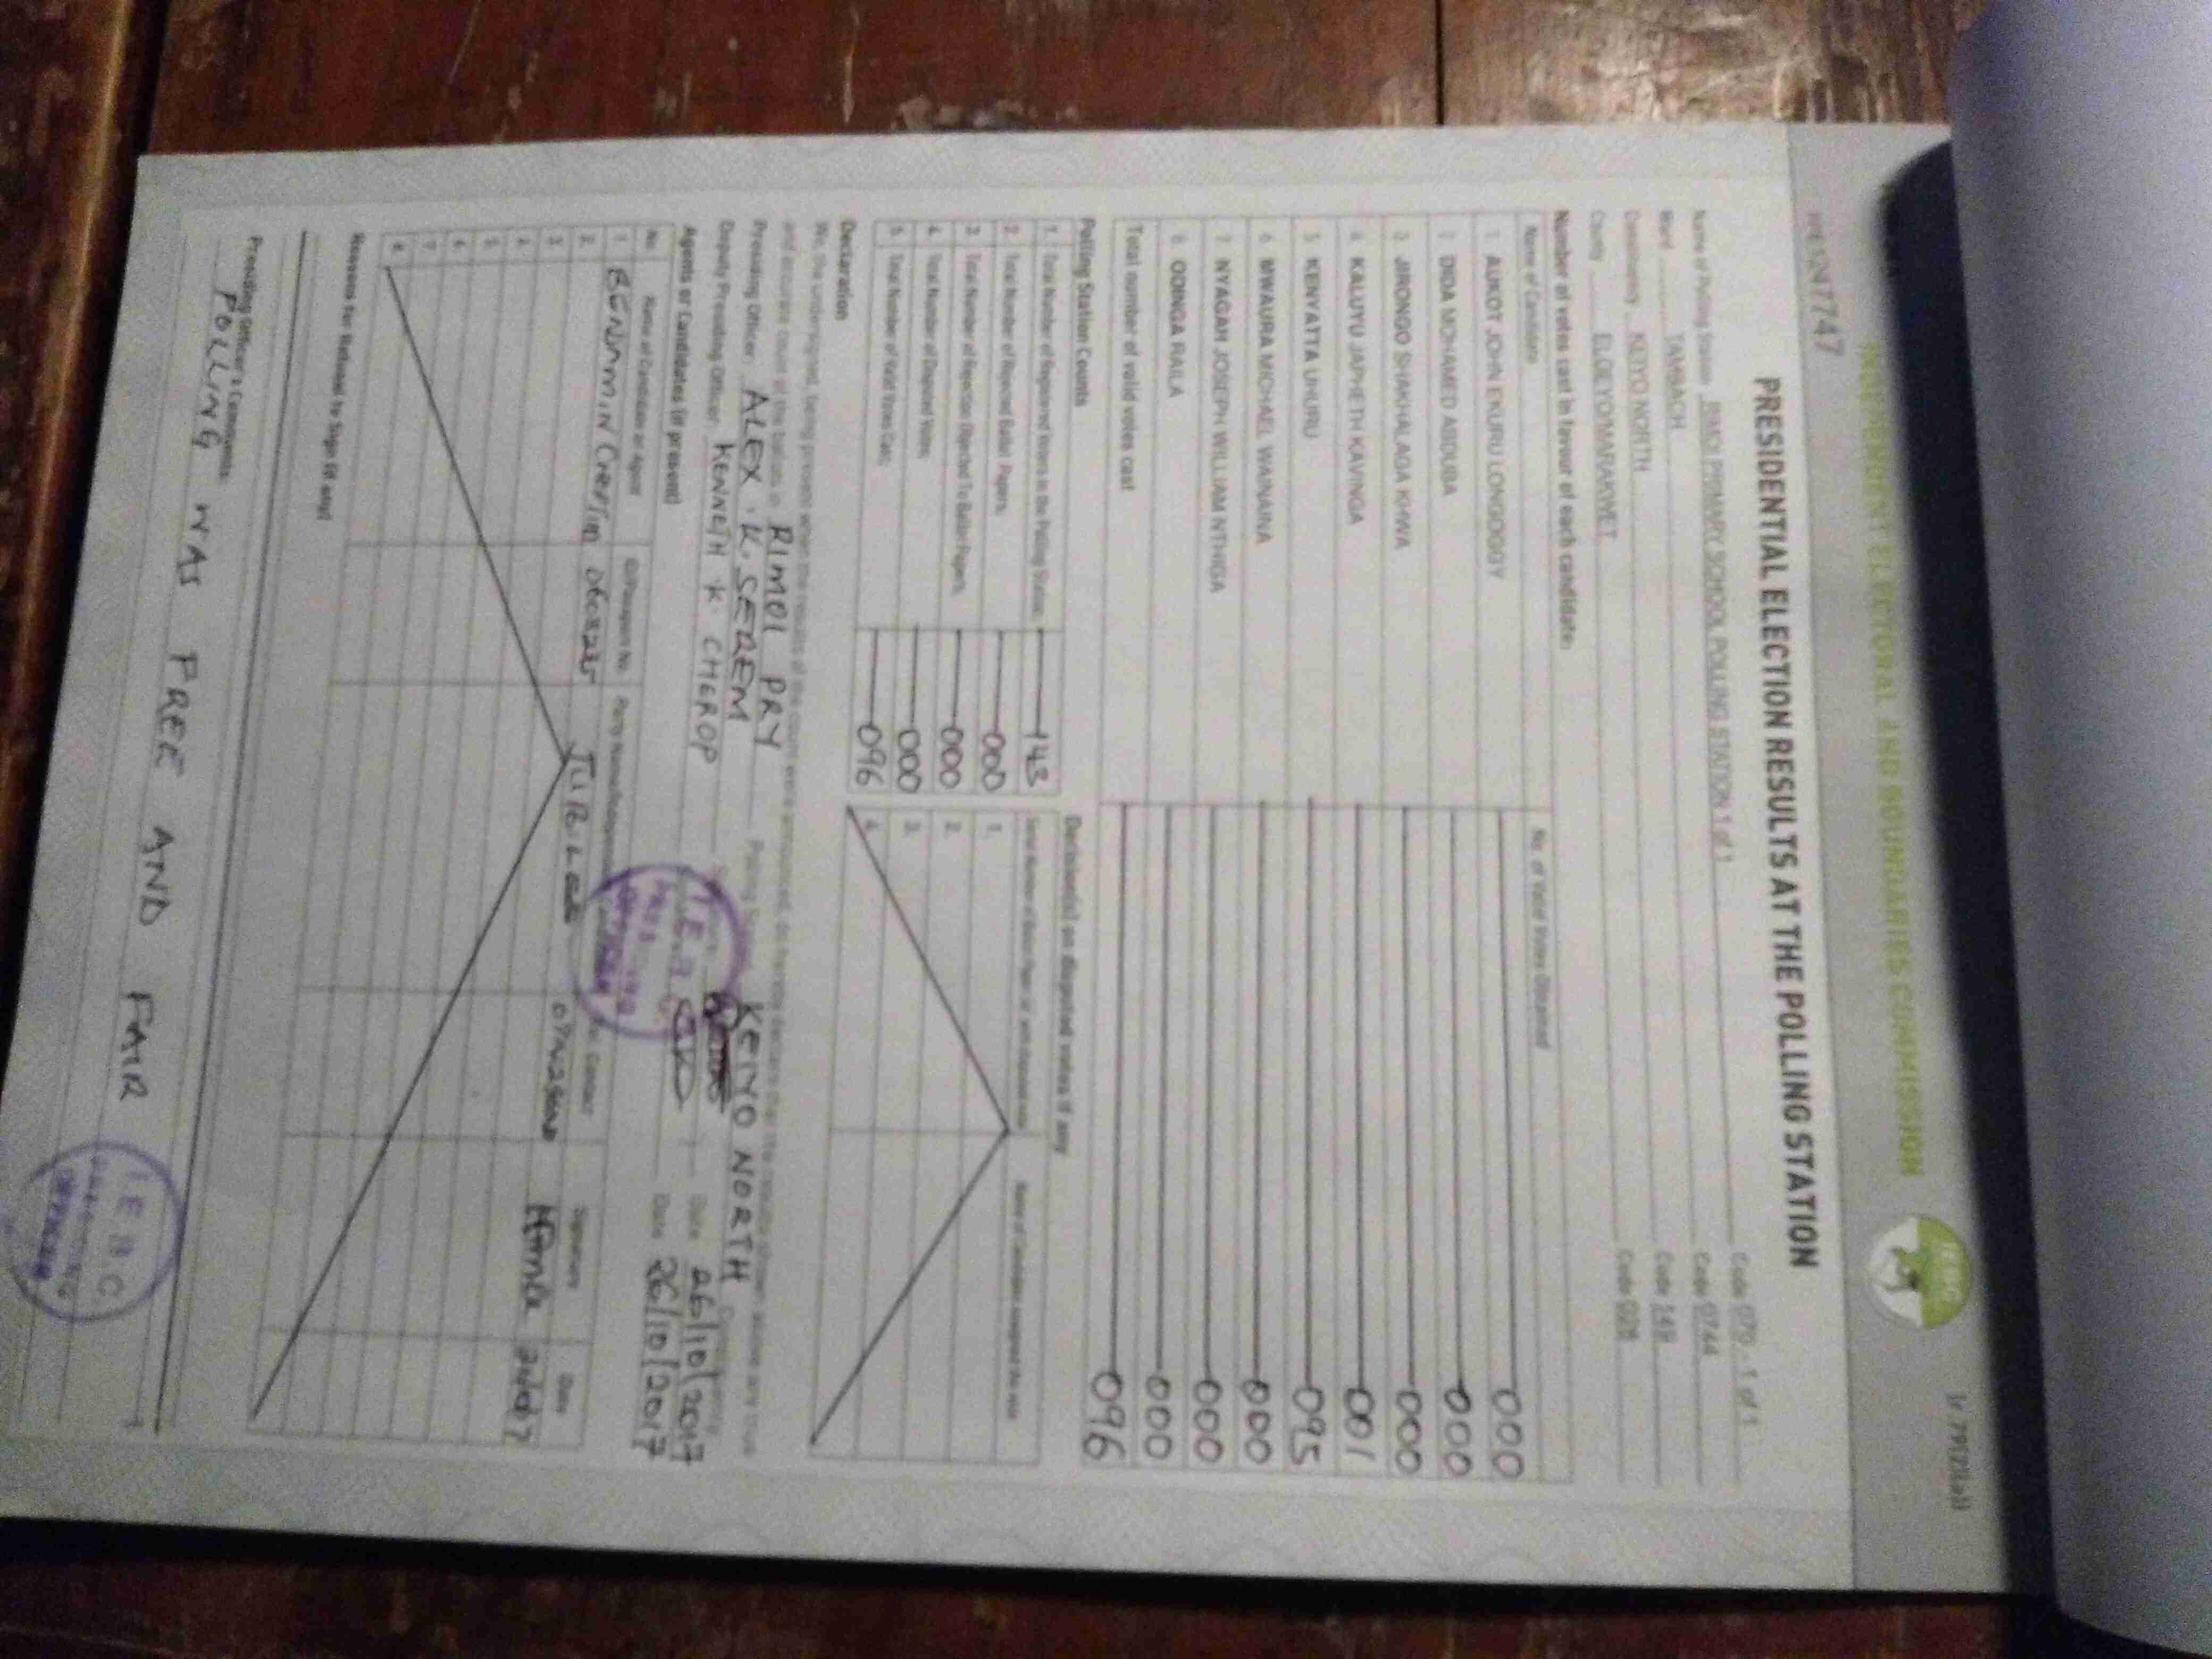 INDEPENDENT ELECTORAL AND BOUNDARIES COMMISSION
IEBC
PRESIDENTIAL ELECTION RESULTS AT THE POLLING STATION
Name of Polling Station RIMOI PRIMARY SCHOOL POLLING STATION 1 of 1 Code 070 - 1 of 1
Ward TAMBACH Code 0744
Constituency KEIYO NORTH Code 149
County ELGEYO/MARAKWET Code 028
Number of votes cast in favour of each candidate:
Name of Candidate No. of Valid Votes Obtained
1. AUKOT JOHN EKURU LONGOGGY 000
2. DIDA MOHAMED ABDUBA 000
3. JIRONGO SHAKHALAGA KHWA 000
4. KALUYU JAPHETH KAVINGA 001
5. KENYATTA UHURU 095
6. MWAURA MICHAEL WAINAINA 000
7. NYAGAH JOSEPH WILLIAM NTHIGA 000
8. ODINGA RAILA 000
Total number of valid votes cast 096
Polling Station Counts
1. Total Number of Registered Voters in the Polling Station 143
2. Total Number of Rejected Ballot Papers 000
3. Total Number of Rejection Objected To Ballot Papers 000
4. Total Number of Disputed Votes 000
5. Total Number of Valid Votes Cast 096
Decision(s) on disputed votes if any
1.
2.
3.
4.
Declaration
We, the undersigned, being present when the results of the count were announced, do hereby declare that the results shown above are true
and accurate count of the ballots in RIMOI PRY Polling Station KEIYO NORTH
Presiding Officer ALEX K. SEREM Date 26/10/2017
Deputy Presiding Officer KENNETH K CHEROP Date 26/10/2017
Agents or Candidates (if present)
No. Name of Candidate or Agent ID/Passport No. Contact Signature Date
1. BENJAMIN JUBILEE
2.
3.
4.
5.
6.
7.
8.
Reasons for Refusal to Sign (if any)
Presiding Officer's Comments
POLLING WAS FREE AND FAIR
I.E.B.C.
PRESIDING
OFFICER